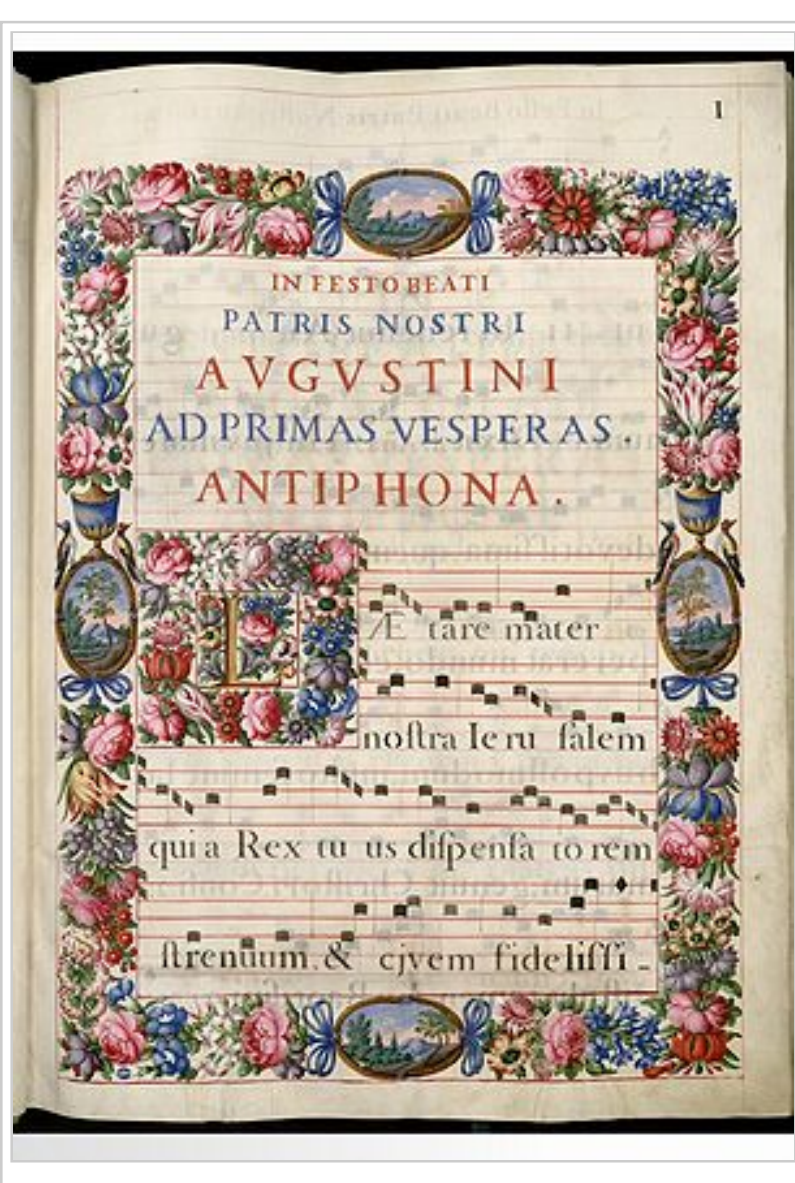 1
IN FESTO BEATI
PATRIS NOSTRI
AVGVSTINI
AD PRIMAS VESPERAS.
ANTIPHONA.
LÆ tare mater
noſtra Ie ru ſalem
qui a Rex tu us diſpenſa to rem
ſtrenuum. & cjvem fideliſſi -